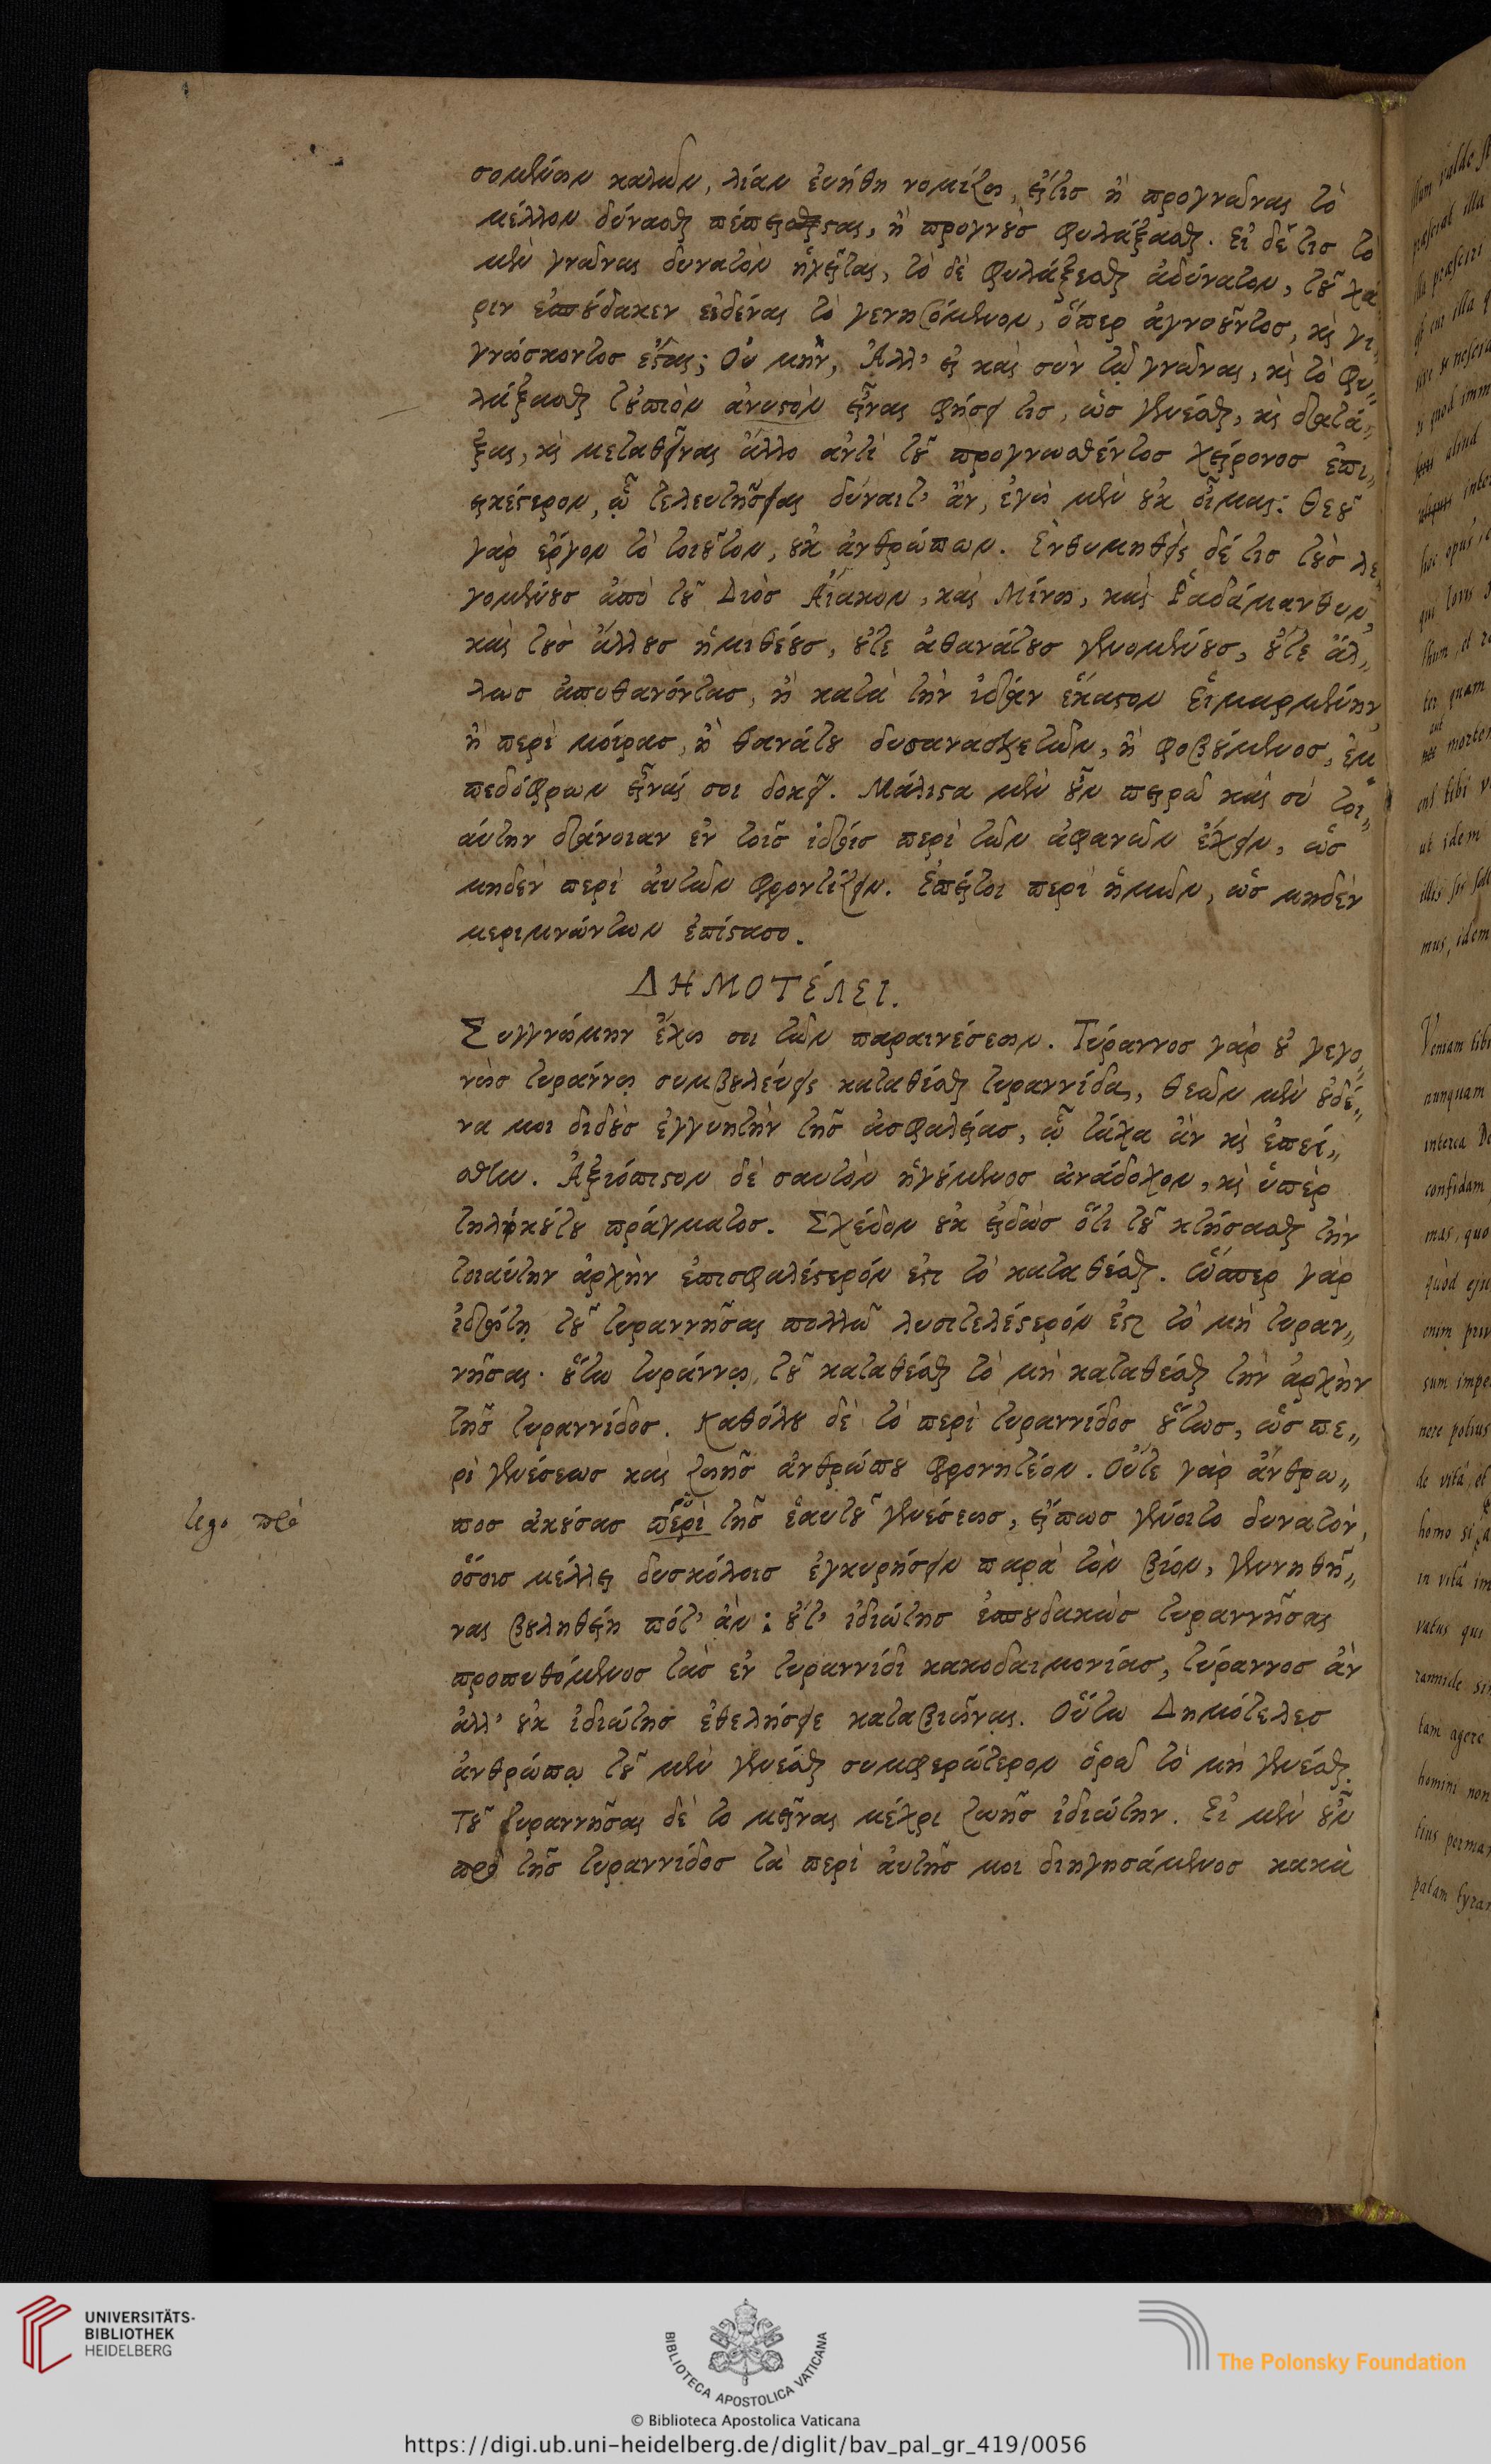 σομένων καλῶν, λίαν εὐήθη νομίζω, εἴτισ ἢ προγνῶναι τὸ
μέλλον δύνασθαι πέπεισται, ἢ προγνοὺσ φυλάξασθαι. Εἰ δέ τισ τὸ
μὲν γνῶναι δυνατὸν ἡγεῖται, τὸ δὲ φυλάξεσθαι ἀδύνατον, τοῦ χά
ριν ἐσπούδακεν εἰδέναι τὸ γενησόμενον, ὅπερ ἀγνοοῦντοσ, καὶ γι„
γνώσκοντοσ ἔσται; Οὐ μὴν, Ἀλλ' εἰ καὶ σὺν τῷ γνῶναι, καὶ τὸ φυ„
λάξασθαι τουπιὸν ἀνυστὸν εἶναι φήσει τισ, ὡσ γενέσθαι, καὶ διατά„
ξαι, καὶ μεταθεῖναι ἄλλο ἀντὶ τοῦ προγνωσθέντοσ χείρονοσ ἐπι„
εικέστερον, ᾧ τελευτήσειας δύναιτ' ἂν, ἐγὼ μὲν οὐκ οἶμαι: θεοῦ
γὰρ ἔργον τὸ τοιοῦτον, οὐκ ἀνθρώπων. Ἐνθυμηθεὶς δέ τισ τοὺσ λε„
γομένουσ ἀπὸ τοῦ Διὸσ Αἴακον, καὶ Μίνω, καὶ Ῥαδάμανθυν,
καὶ τοὺσ ἄλλουσ ἡμιθέουσ, οὔτε ἀθανάτουσ γενομένουσ, οὔτε ἄλ„
λωσ ἀποθανόντασ, ἢ κατὰ τὴν ἰδίαν ἕκαστον εἱμαρμένην,
ἢ περὶ μοίρασ, ἢ θανάτου δυσανασχετῶν, ἢ φοβούμενοσ, ἐμ„
πεδόφρων εἶναί σοι δοκεῖ. Μάλιστα μὲν οὖν πειρῶ καὶ σὺ τοι„
αύτην διάνοιαν ἐν τοῖσ ἰδίοισ περὶ τῶν ἀφανῶν ἔχειν, ὡσ
μηδὲν περὶ αὐτῶν φροντίζειν. Ἐπείτοι περὶ ἡμῶν, ὡσ μηδὲν
μεριμνώντων ἐπίστασο.
ΔΗΜΟΤΈΛΕΙ.
Συγγνώμην ἔχω σοι τῶν παραινέσεων. Τύραννοσ γὰρ οὐ γεγο„
νὼσ τυράννῳ συμβουλεύεις καταθέσθαι τυραννίδα, θεῶν μὲν οὐδέ„
να μοι διδοὺσ ἐγγυητὴν τῆσ ἀσφαλείασ, ᾧ τάχα ἂν καὶ ἐπεί„
σθην. Ἀξιόπιστον δὲ σαυτὸν ἡγούμενοσ ἀνάδοχον, καὶ ὑπὲρ
τηλικούτου πράγματοσ. Σχέδον οὐκ εἰδὼσ ὅτι τοῦ κτήσασθαι τὴν
τοιαύτην ἀρχὴν ἐπισφαλέστερόν ἐστι τὸ καταθέσθαι. Ὥσπερ γὰρ
ἰδιώτῃ τοῦ τυραννῆσαι πολλῶ λυσιτελέστερόν ἐστι τὸ μὴ τυραν„
νῆσαι· οὕτω τυράννῳ, τοῦ καταθέσθαι τὸ μὴ καταθέσθαι τὴν ἀρχὴν
τῆσ τυραννίδοσ. Καθόλου δὲ τὸ περὶ τυραννίδοσ οὕτωσ, ὡσ πε„
ρὶ γενέσεωσ καὶ ζωῆσ ἀνθρώπου φρονητέον. Οὔτε γὰρ ἄνθρω„
ποσ ἀκούσασ περὶ τῆσ ἑαυτοῦ γενέσεωσ, εἴπωσ γένοιτο δυνατὸν,
lego πρὸ
ὅσοισ μέλλει δυσκόλοισ ἐγκυρήσειν παρὰ τὸν βίον, γεννηθῆ„
ναι βουληθείη πότ' ἄν: οὔτ' ἰδιώτησ ἐσπουδακὼσ τυραννῆσαι
προπυθόμενοσ τὰσ ἐν τυραννίδι κακοδαιμονίασ, τύραννοσ ἂν
ἀλλ' οὐκ ἰδιώτησ ἐθελήσειε καταβιῶναι. Οὕτω Δημότελεσ
ἀνθρώπῳ τοῦ μὲν γενέσθαι συμφερώτερον ὁρῶ τὸ μὴ γενέσθαι.
Τοῦ τυραννῆσαι δὲ το μεῖναι μέχρι ζωῆσ ἰδιώτην. Εἰ μὲν οὖν
πρὸ τῆσ τυραννίδοσ τὰ περὶ αὐτῆσ μοι διηγησάμενοσ κακὰ
UNIVERSITÄTS-
BIBLIOTHEK
HEIDELBERG
BIBLIOTECA APOSTOLICA VATICANA
The Polonsky Foundation
© Biblioteca Apostolica Vaticana
https://digi.ub.uni-heidelberg.de/diglit/bav_pal_gr_419/0056